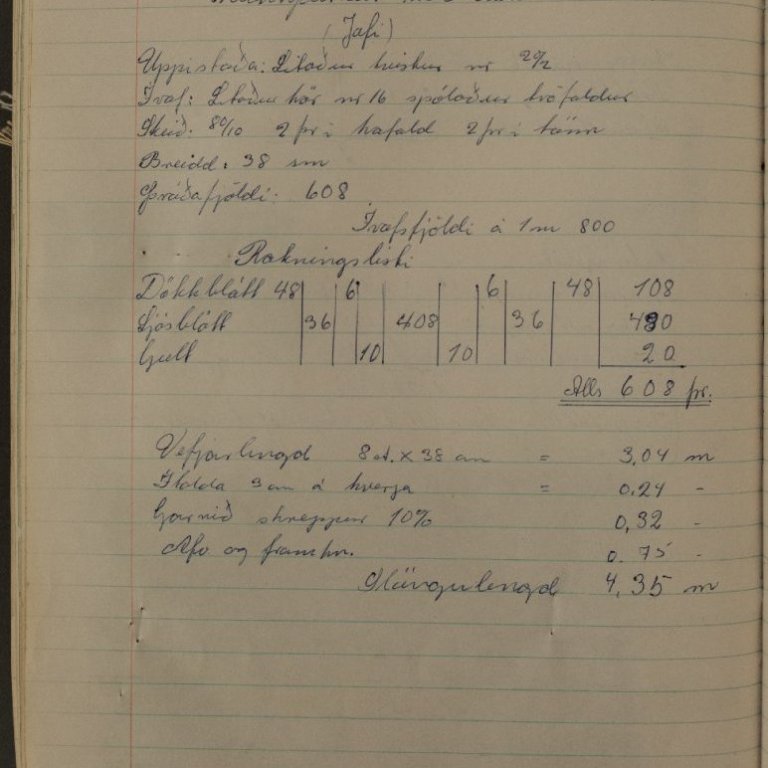 (Jafi)
Uppistaða: Litaður tvistur nr 20/2
Ívaf: Litaður hör nr 16 spólaður tvöfaldur
Skeið: 80/10 2 þr í hafald 2 þr í tönn
Breidd: 38 sm
Þráðafjöldi: 608
Ívafsfjöldi á 1 m 800
Rakningslisti
Dökkblátt 48 6 6 48 108
Ljósblátt 36 408 36 480
Gult 10 10 20
Alls 608 þr.
Vefjarlengd 8 st. x 38 cm = 3,04 m
Í falda 3 cm á hverja = 0,24 -
Garnið skreppur 10% 0,32 -
Afv og framhn. 0.75 -
Slöngulengd 4,35 m